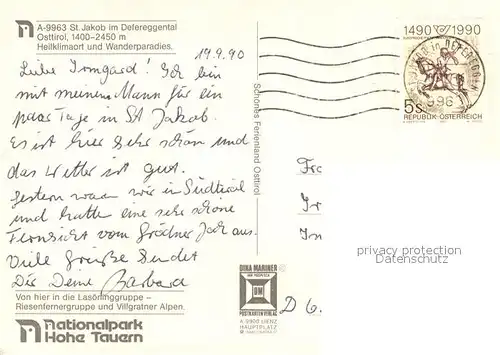 A-9963 St. Jakob im Defereggental
Osttirol, 1400–2450 m
Heilklimaort und Wanderparadies.
19.9.90
Liebe Irmgard! Ich bin
mit meinem Mann für ein
paar Tage in St Jakob.
Es ist hier sehr schön und
das Wetter ist gut.
Gestern waren wir in Südtirol
und hatten eine sehr schöne
Fernsicht vom Grödner Joch aus.
Viele Grüße sendet
Dir Deine Barbara
Von hier in die Lasörlinggruppe –
Riesenfernergruppe und Villgratner Alpen.
nationalpark
Hohe Tauern
Schönes Ferienland Osttirol
DINA MARINER
DM
POSTKARTEN VERLAG
A-9900 LIENZ
HAUPTPLATZ
1490 1990
5s
REPUBLIK ÖSTERREICH
Fra
Ir
In
D 6
privacy protection
Datenschutz